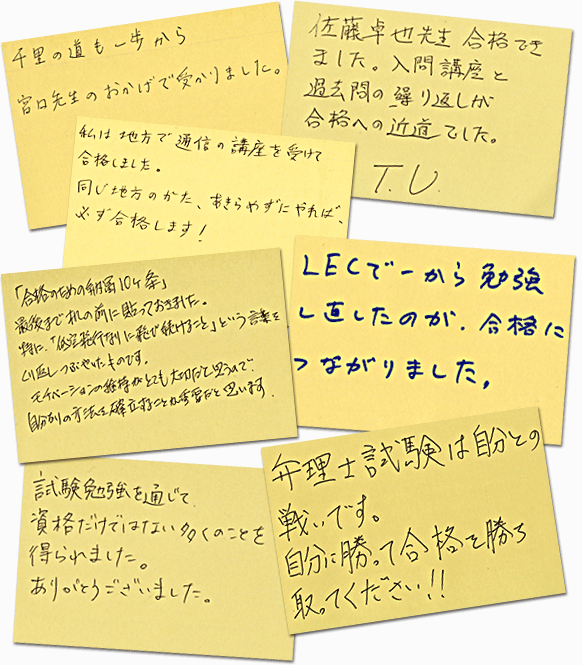 千里の道も一歩から
宮口先生のおかげで受かりました。
佐藤卓也先生 合格でき
ました。入門講座と
過去問の繰り返しが
合格への近道でした。
T.U.
私は地方で通信の講座を受けて
合格しました。
同じ地方のかた、あきらめずにやれば、
必ず合格します!
「合格のための納冨10ヶ条」
最後まで机の前に貼っておきました。
特に、「に
続けること」という言葉を
くり返しつぶやいたものです。
モチベーションの維持がとても大切だと思うので
自分なりの方法を確立することが重要だと思います。
LECで一から勉強
し直したのが、合格に
つながりました。
試験勉強を通じて
資格だけではない多くのことを
得られました。
ありがとうございました。
弁理士試験は自分との
戦いです。
自分に勝って合格を勝ち
取ってください!!